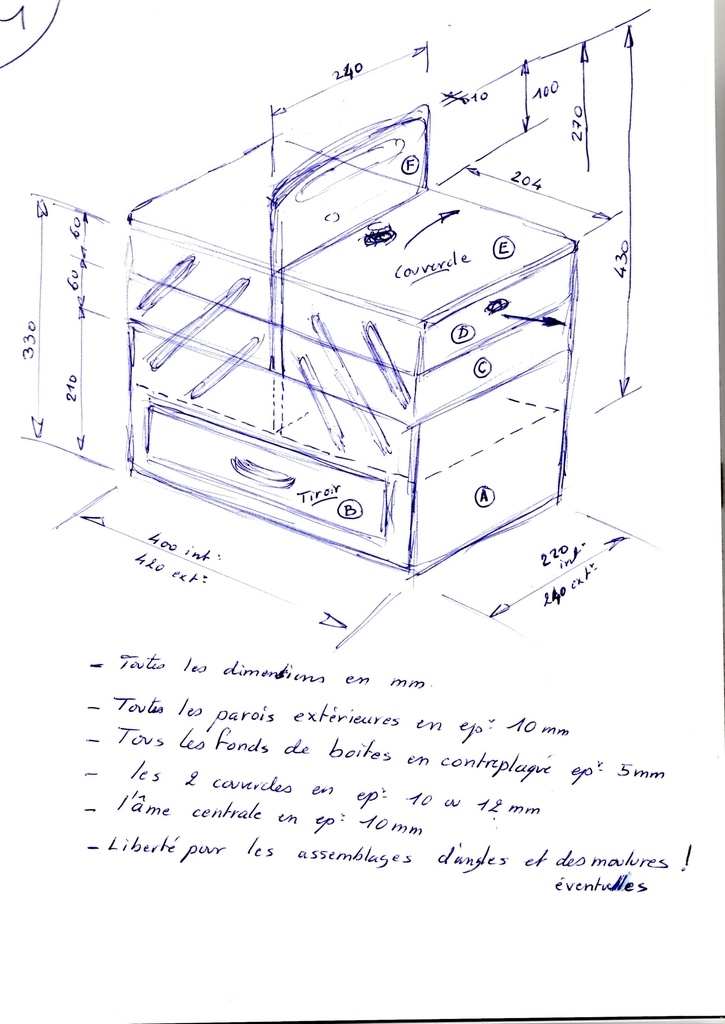 1
240
10
100
270
204
430
F
Couvercle
E
60
60
D
C
330
210
Tiroir
B
A
400 int.
420 ext.
220
int.
240 ext.
- Toutes les dimensions en mm.
- Toutes les parois extérieures en epr 10 mm
- Tous les fonds de boites en contreplaqué epr 5 mm
- les 2 couvercles en epr 10 ou 12 mm
- l'âme centrale en epr 10 mm
- Liberté pour les assemblages d'angles et des moulures !
éventuelles